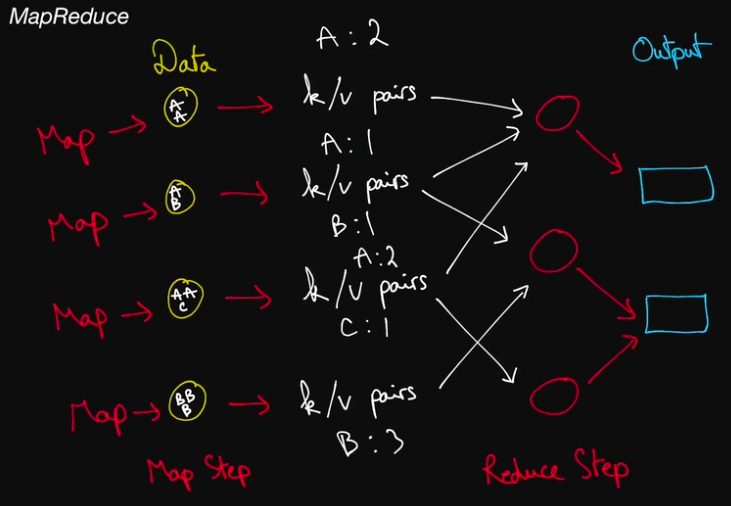 MapReduce
A : 2
Data
Output
Map
A
A
k/v pairs
A : 1
Map
A
B
k/v pairs
B : 1
A : 2
Map
AA
C
k/v pairs
C : 1
Map
BB
B
k/v pairs
B : 3
Map Step
Reduce Step